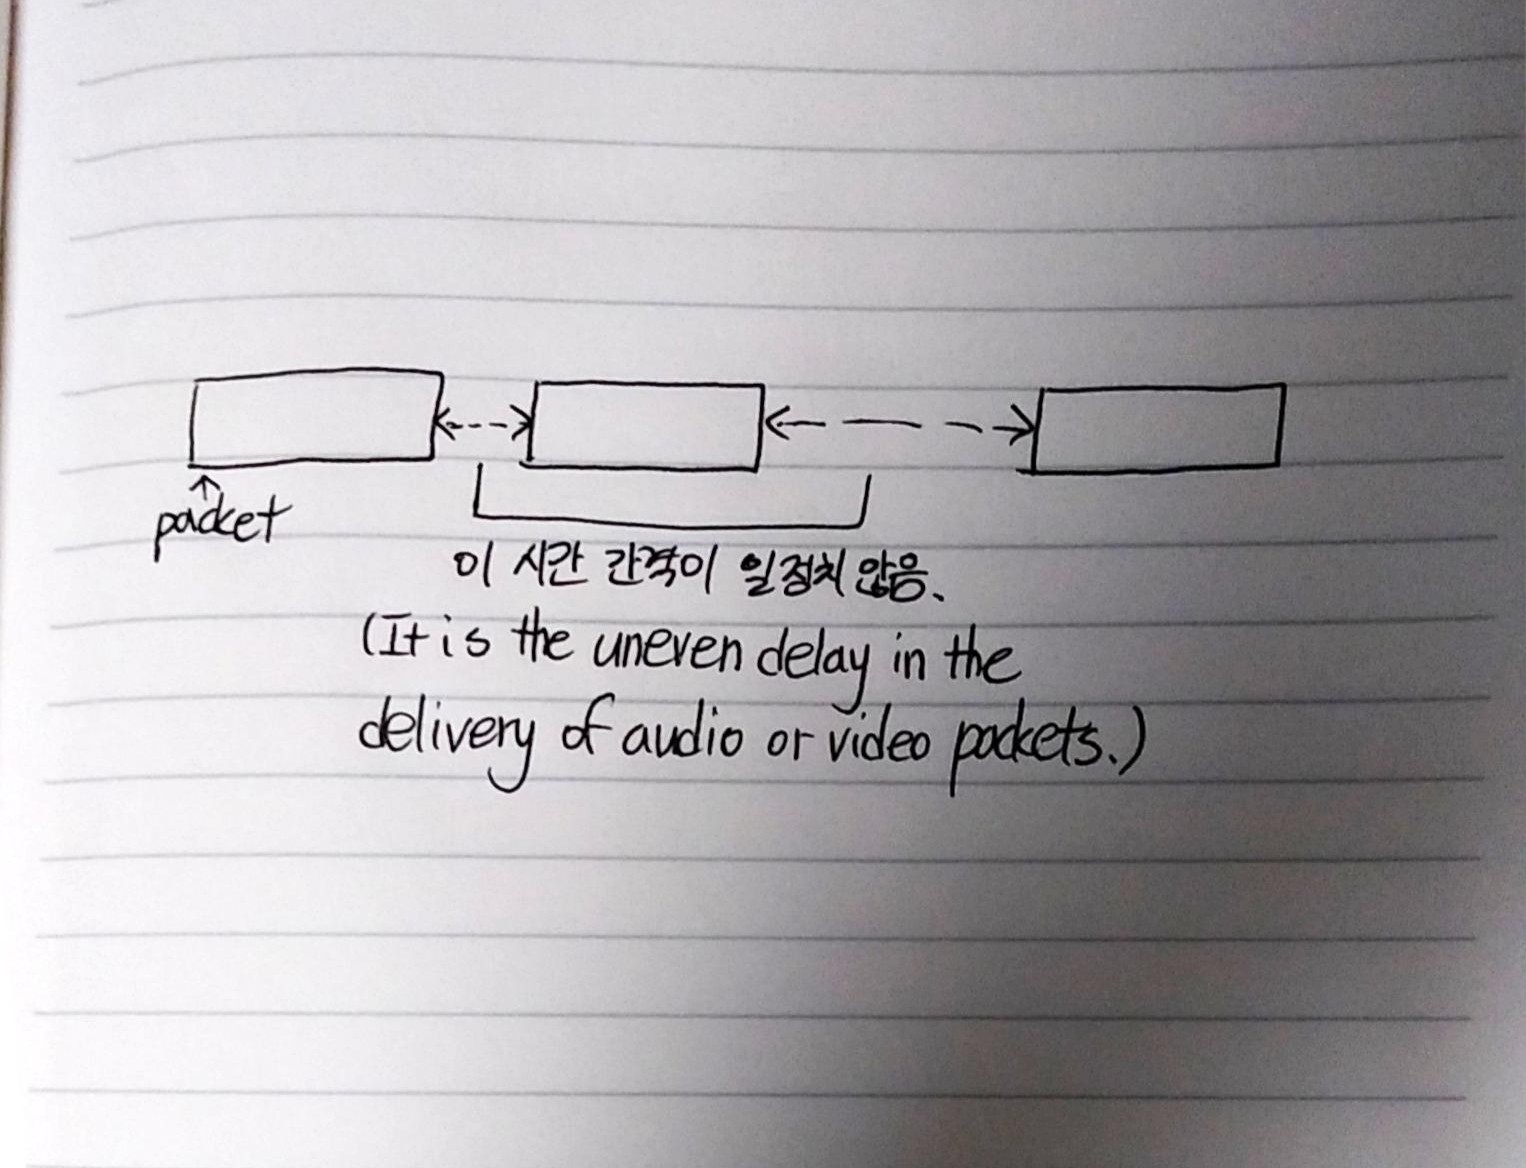 packet
이 시간 간격이 일정치 않음.
(It is the uneven delay in the
delivery of audio or video packets.)